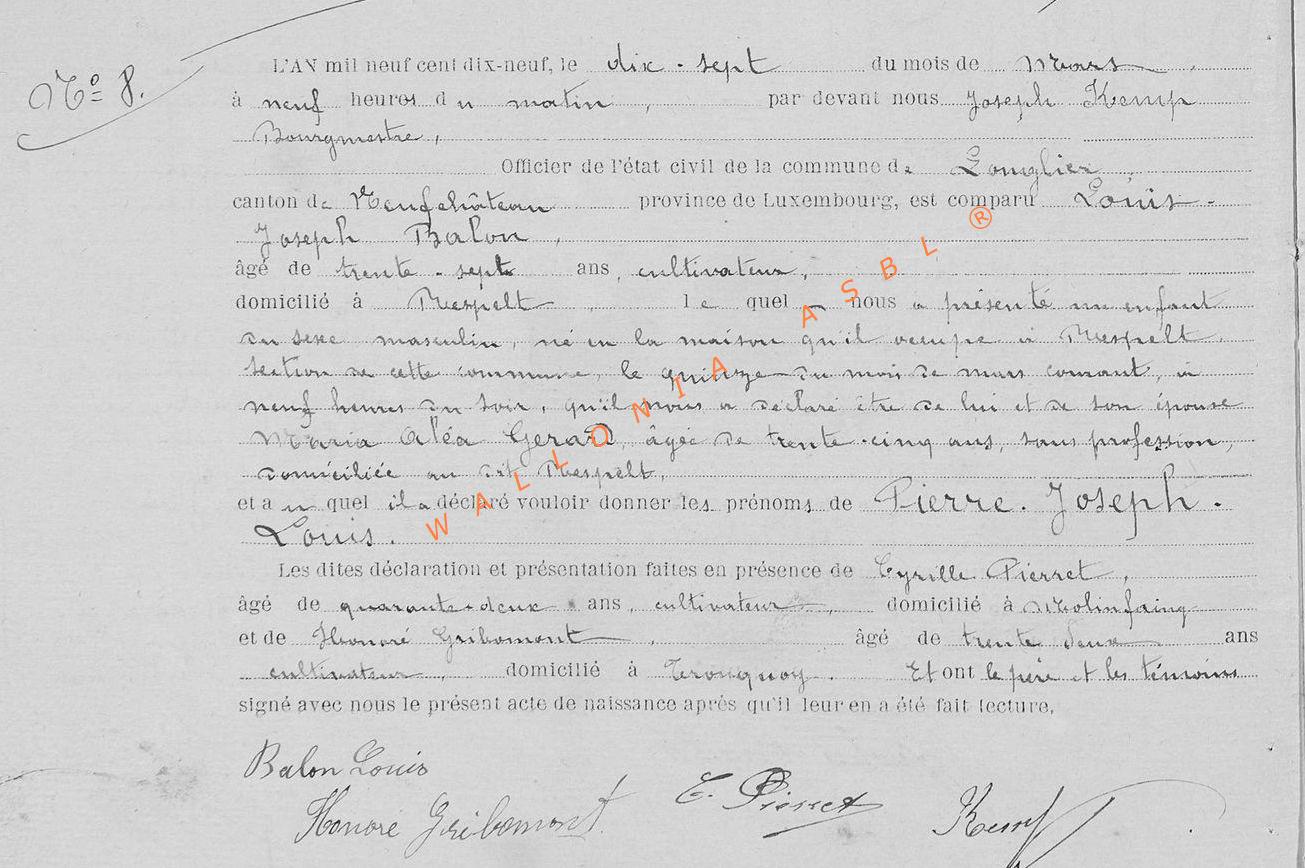 No 8.
L'AN mil neuf cent dix-neuf, le dix-sept du mois de Mars
à neuf heures du matin, par devant nous Joseph Kemp
Bourgmestre,
Officier de l'état civil de la commune de Longlier
canton de Neufchâteau province de Luxembourg, est comparu Louis-
Joseph Balon,
âgé de trente-sept ans, cultivateur,
domicilié à Respelt, le quel nous a présenté un enfant
du sexe masculin, né en la maison qu'il occupe à Respelt,
section de cette commune, le quinze du mois de mars courant, à
neuf heures du soir, qu'il nous a déclaré être de lui et de son épouse
Maria Gerard, âgée de trente-cinq ans, sans profession,
domiciliée au dit Respelt,
et au quel il a déclaré vouloir donner les prénoms de Pierre. Joseph.
Louis.
Les dites déclaration et présentation faites en présence de Cyrille Pierret,
âgé de quarante-deux ans, cultivateur, domicilié à Molinfaing
et de Honoré Gribomont, âgé de trente deux ans
cultivateur, domicilié à Tronquoy. Et ont le père et les témoins
signé avec nous le présent acte de naissance après qu'il leur en a été fait lecture,
Balon Louis
Honoré Gribomont C. Pierret Kemp
WALLONIA ASBL ®